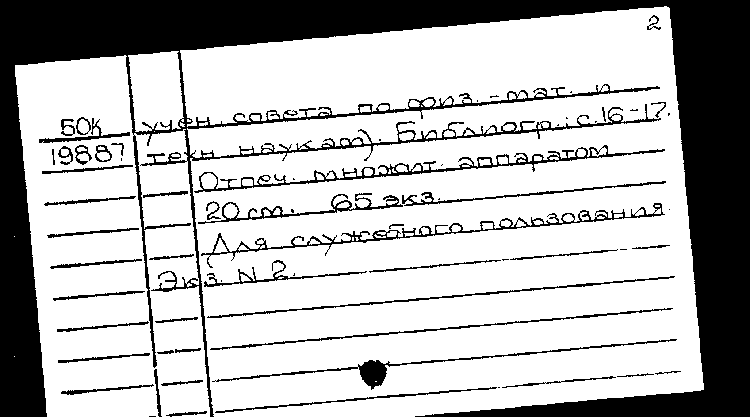 2
50К учен. совета по физ.-мат. и
19887 техн. наукам). Библиогр.: с. 16-17.
Отпеч. множит. аппаратом
20 см. 65 экз.
Для служебного пользования.
Экз. N 2.